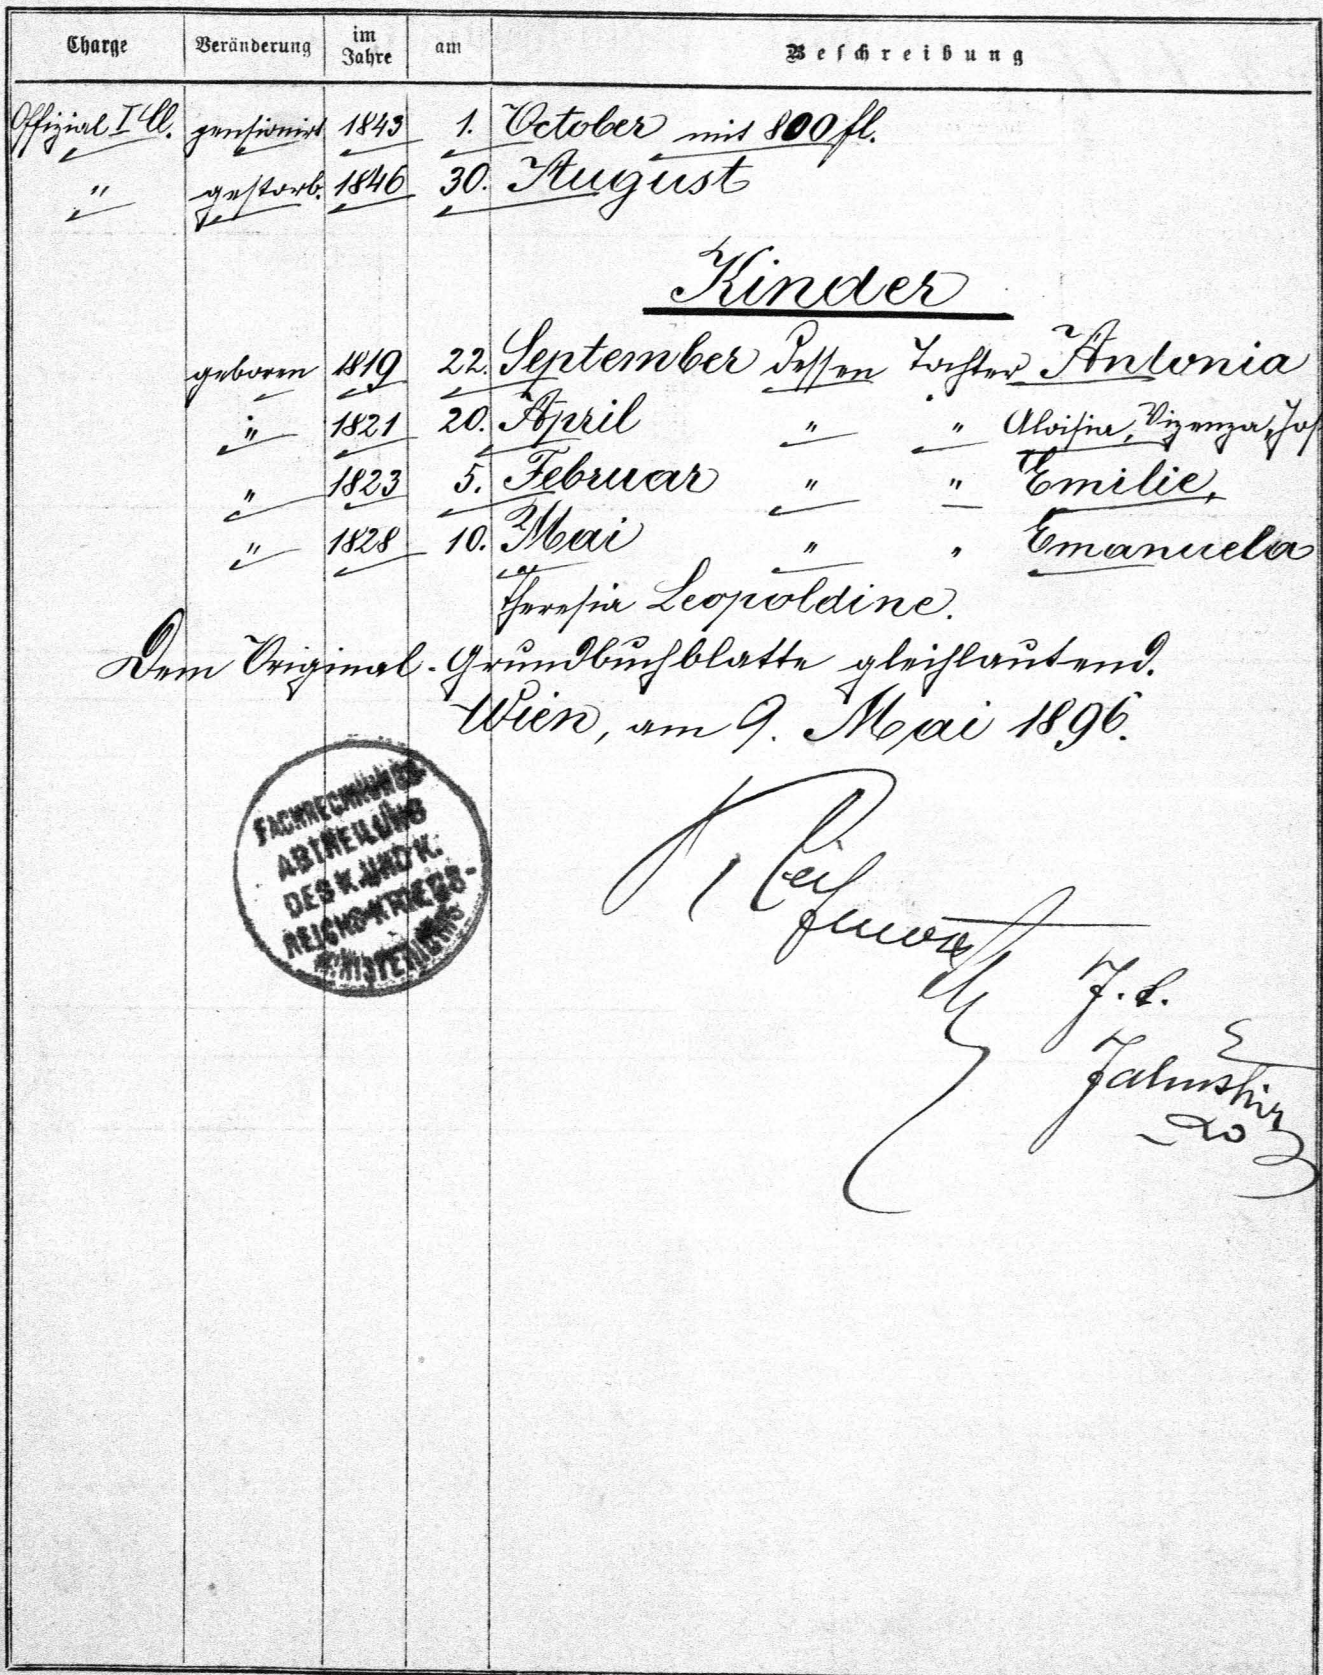 Charge Veränderung im Jahre am Beschreibung
Offizial I Cl. pensionirt 1843 1. October mit 800 fl.
" gestorb. 1846 30. August
Kinder
geboren 1819 22. September dessen Tochter Antonia
" 1821 20. April " " Aloisia, Vizenza, Jos
" 1823 5. Februar " " Emilie,
" 1828 10. Mai " " Emanuela
Theresia Leopoldine.
Dem Original-Grundbuchblatte gleichlautend.
Wien, am 9. Mai 1896.
FACHRECHNUNGS-
ABTHEILUNG
DES K. UND K.
REICHS-KRIEGS-
MINISTERIUMS